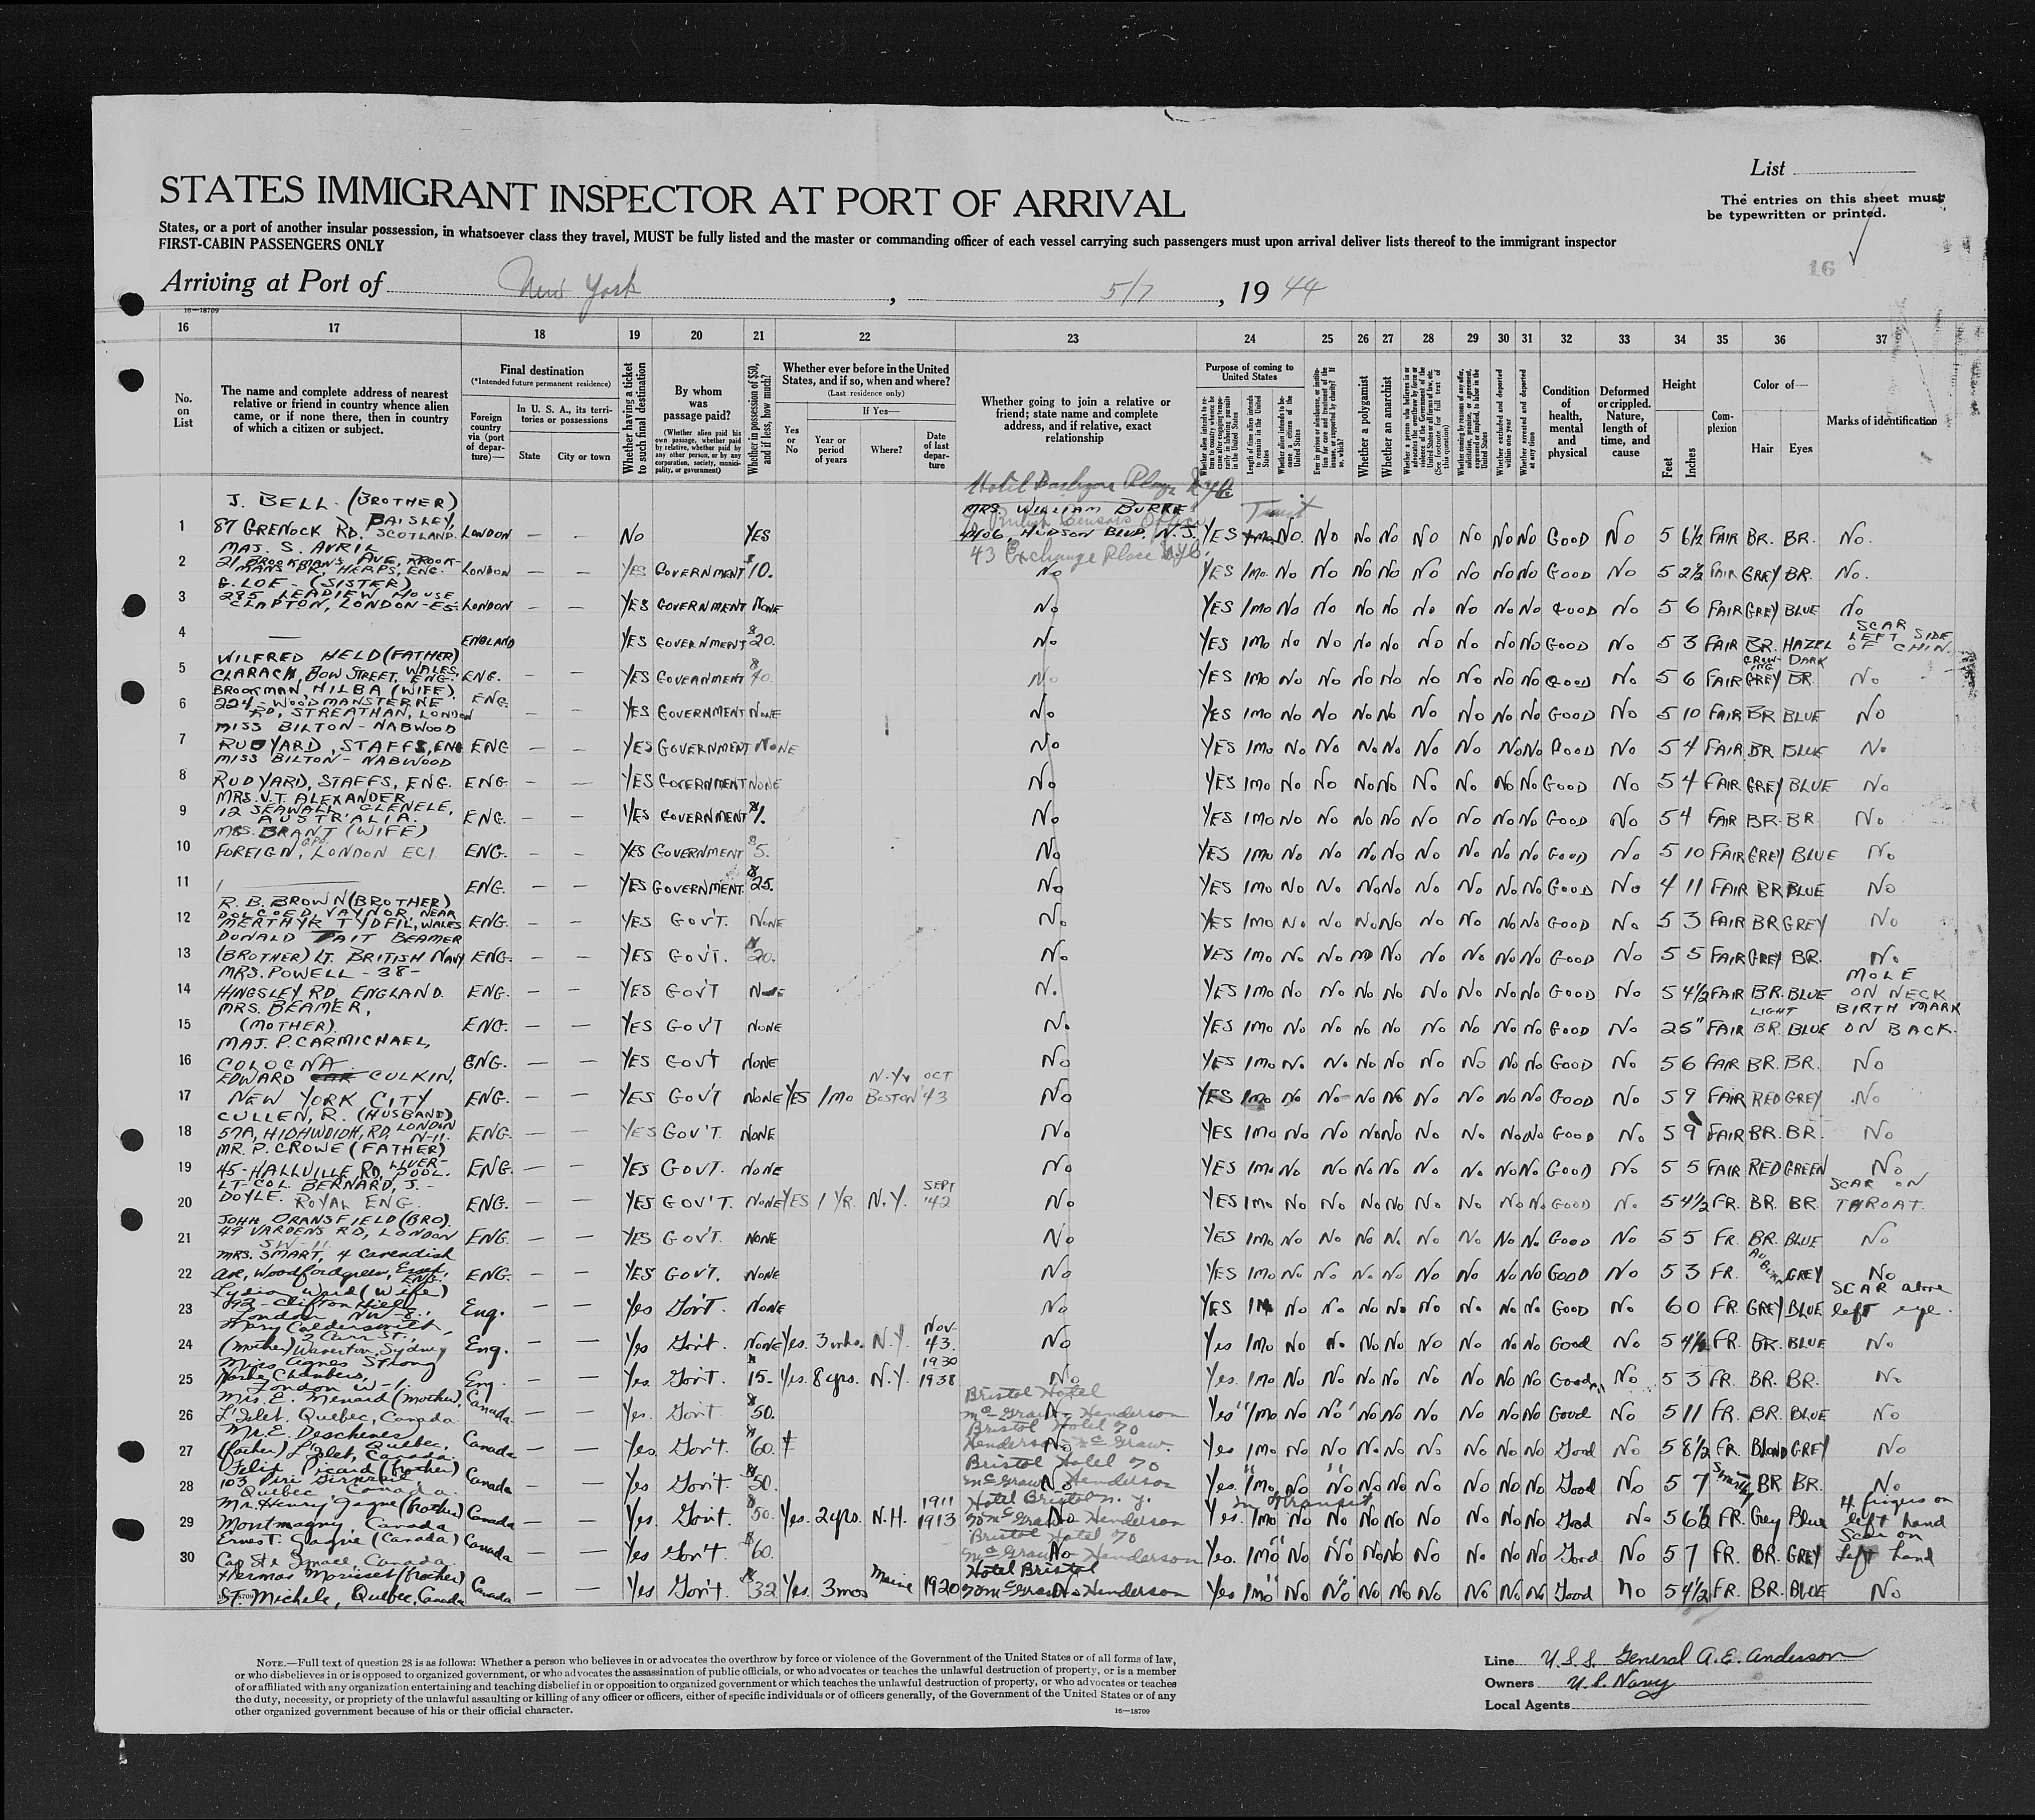 List
The entries on this sheet must
be typewritten or printed.
STATES IMMIGRANT INSPECTOR AT PORT OF ARRIVAL
States, or a port of another insular possession, in whatsoever class they travel, MUST be fully listed and the master or commanding officer of each vessel carrying such passengers must upon arrival deliver lists thereof to the immigrant inspector
FIRST-CABIN PASSENGERS ONLY
16
Arriving at Port of New York, 5/7, 1944
16—18709
16 17 18 19 20 21 22 23 24 25 26 27 28 29 30 31 32 33 34 35 36 37
No. on List
The name and complete address of nearest relative or friend in country whence alien came, or if none there, then in country of which a citizen or subject.
Final destination
(*Intended future permanent residence)
Foreign country via (port of departure)—
In U. S. A., its territories or possessions
State
City or town
Whether having a ticket to such final destination
By whom was passage paid?
(Whether alien paid his own passage, whether paid by relative, whether paid by any other person, or by any corporation, society, municipality, or government)
Whether in possession of $50, and if less, how much?
Whether ever before in the United States, and if so, when and where?
(Last residence only)
Yes or No
If Yes—
Year or period of years
Where?
Date of last departure
Whether going to join a relative or friend; state name and complete address, and if relative, exact relationship
Purpose of coming to United States
Length of time alien intends to remain in the United States
Whether alien intends to become a citizen of the United States
Whether a polygamist
Whether an anarchist
Whether excluded and deported within one year
Whether arrested and deported at any time
Condition of health, mental and physical
Deformed or crippled. Nature, length of time, and cause
Height
Feet
Inches
Complexion
Color of—
Hair
Eyes
Marks of identification
Hotel
J. BELL. (BROTHER) MRS. WILLIAM BURKE
1 87 GRENOCK RD. PAISLEY, SCOTLAND. LONDON — — NO YES 4406, HUDSON BLVD. N.J. YES 1mo. NO. NO NO NO NO NO NO NO GOOD NO 5 6½ FAIR BR. BR. NO.
43 Exchange Place
MAJ. S. AVRIL
2 21 BROOKMANS AVE, BROOKMANS PK, HERPS, ENG. LONDON — — YES GOVERNMENT $10. NO YES 1MO. NO NO NO NO NO NO NO NO GOOD NO 5 2½ FAIR GREY BR. NO.
G. LOE - (SISTER)
3 285 LEADIEW HOUSE CLAPTON, LONDON-E5- LONDON — — YES GOVERNMENT NONE NO YES 1MO NO NO NO NO NO NO NO NO GOOD NO 5 6 FAIR GREY BLUE NO
4 — ENGLAND YES GOVERNMENT $20. NO YES 1MO NO NO NO NO NO NO NO NO GOOD NO 5 3 FAIR BR. HAZEL SCAR LEFT SIDE OF CHIN.
WILFRED HELD (FATHER)
5 CLARACH, BOW STREET, WALES, ENG. ENG. — — YES GOVERNMENT $40. NO YES 1MO NO NO NO NO NO NO NO NO GOOD NO 5 6 FAIR GREY DARK BR. NO
BROOKMAN, HILBA (WIFE)
6 224-WOODMANSTERNE RD, STREATHAN, LONDON ENG. — — YES GOVERNMENT NONE NO YES 1MO NO NO NO NO NO NO NO NO GOOD NO 5 10 FAIR BR BLUE NO
MISS BILTON - NABWOOD
7 RUDYARD, STAFFS, ENG ENG — — YES GOVERNMENT NONE NO YES 1MO NO NO NO NO NO NO NO NO GOOD NO 5 4 FAIR BR BLUE NO
MISS BILTON - NABWOOD
8 RUDYARD, STAFFS, ENG. ENG. — — YES GOVERNMENT NONE NO YES 1MO NO NO NO NO NO NO NO NO GOOD NO 5 4 FAIR GREY BLUE NO
MRS. V.T. ALEXANDER
9 12 SEAWALL, GLENELE, AUSTRALIA. ENG. — — YES GOVERNMENT $1. NO YES 1MO NO NO NO NO NO NO NO NO GOOD NO 5 4 FAIR BR. BR. NO
MRS. BRANT (WIFE)
10 FOREIGN, GPO. LONDON EC1 ENG. — — YES GOVERNMENT $5. NO YES 1MO NO NO NO NO NO NO NO NO GOOD NO 5 10 FAIR GREY BLUE NO
11 — ENG. — — YES GOVERNMENT. $25. NO YES 1MO NO NO NO NO NO NO NO NO GOOD NO 4 11 FAIR BR BLUE NO
R. B. BROWN (BROTHER)
12 DOLCOED, VAYNOR, NEAR MERTHYR TYDFIL, WALES ENG. — — YES GOV'T. NONE NO YES 1MO NO NO NO NO NO NO NO NO GOOD NO 5 3 FAIR BR GREY NO
DONALD TAIT BEAMER
13 (BROTHER) LT. BRITISH NAVY ENG. — — YES GOV'T. $20. NO YES 1MO NO NO NO NO NO NO NO NO GOOD NO 5 5 FAIR GREY BR. NO
MRS. POWELL - 38-
14 HINGSLEY RD, ENGLAND. ENG. — — YES GOV'T NO YES 1MO NO NO NO NO NO NO NO NO GOOD NO 5 4½ FAIR BR. BLUE MOLE ON NECK
MRS. BEAMER,
15 (MOTHER). ENG. — — YES GOV'T NONE NO YES 1MO NO NO NO NO NO NO NO NO GOOD NO 25" FAIR LIGHT BR. BLUE BIRTH MARK ON BACK.
MAJ. P. CARMICHAEL,
16 COLOGNA. ENG. — — YES GOV'T NONE NO YES 1MO NO NO NO NO NO NO NO NO GOOD NO 5 6 FAIR BR. BR. NO
EDWARD CULKIN,
17 NEW YORK CITY ENG. — — YES GOV'T NONE YES 1MO N.Y. BOSTON OCT '43 NO YES 1MO NO NO NO NO NO NO NO NO GOOD NO 5 9 FAIR RED GREY NO
CULLEN, R. (HUSBAND)
18 57A, HIDHWDIDH, RD, LONDON N-11. ENG. — — YES GOV'T. NONE NO YES 1MO NO NO NO NO NO NO NO NO GOOD NO 5 9 FAIR BR. BR. NO
MR. P. CROWE (FATHER)
19 45-HALLVILLE RD, LIVERPOOL. ENG. — — YES GOVT. NONE NO YES 1MO NO NO NO NO NO NO NO NO GOOD NO 5 5 FAIR RED GREEN NO
LT. COL. BERNARD, J.-
20 DOYLE. ROYAL ENG. ENG. — — YES GOV'T. NONE YES 1 YR. N.Y. SEPT '42 NO YES 1MO NO NO NO NO NO NO NO NO GOOD NO 5 4½ FR. BR. BR. SCAR ON THROAT.
JOHN DRANSFIELD (BRO).
21 49 VARDENS RD, LONDON SW-11 ENG. — — YES GOV'T. NONE NO YES 1MO NO NO NO NO NO NO NO NO GOOD NO 5 5 FR. BR. BLUE NO
MRS. SMART, 4 Cavendish
22 ave, Woodfordgreen, Essex, ENG. ENG. — — YES GOV'T. NONE NO YES 1MO NO NO NO NO NO NO NO NO GOOD NO 5 3 FR. AUBURN GREY NO
Lydia Ward (Wife)
23 92-Clifton Hill London NW-8. Eng. — — Yes Gov't. NONE NO YES 1M NO NO NO NO NO NO NO NO GOOD NO 6 0 FR GREY BLUE SCAR above left eye.
Mary Caldersmith,
24 (mother) 2 Carr St., Waverton, Sydney Eng. — — Yes Gov't. NONE Yes. 3 mhs. N.Y. Nov. 43. NO Yes 1Mo NO NO NO NO NO NO NO NO Good NO 5 4½ FR. BR. BLUE NO
Miss Agnes Strong
25 Harley Chambers, London W-1. Eng. — — Yes. Gov't. $15- Yes. 8 yrs. N.Y. 1930 1938 NO Yes. 1MO NO NO NO NO NO NO NO NO Good NO 5 3 FR. BR. BR. NO
Mrs. E. Menard (mother), Bristol Hotel
26 L'Islet, Quebec, Canada Canada — — Yes. Gov't $50. McGraw Henderson No Yes 1mo NO NO NO NO NO NO NO NO Good NO 5 11 FR. BR. BLUE NO
Mr. E. Deschenes Bristol Hotel %
27 (father) L'Islet, Quebec, Canada. Canada — — Yes. Gov't. $60. Henderson McGraw. No Yes 1mo NO NO NO NO NO NO NO NO Good NO 5 8½ FR. BLOND GREY NO
Felix Picard (father) Bristol Hotel %
28 103 Quebec Canada. Canada — — Yes Gov't. $50. McGraw Henderson No Yes. 1mo NO NO NO NO NO NO NO NO Good NO 5 7 BR. BR. NO
Mr. Henry Gagne (father) Hotel Bristol N.Y. In Transit
29 Montmagny, Canada Canada — — Yes. Gov't. $50. Yes. 2 yrs. N.H. 1911 1913 % McGraw Henderson No Yes. 1mo NO NO NO NO NO NO NO NO Good NO 5 6½ FR. Grey Blue 4 fingers on left hand
Ernest (Canada) Bristol Hotel %
30 Cap Ste Ignace, Canada. Canada — — Yes Gov't. $60. McGraw Henderson No Yes. 1mo NO NO NO NO NO NO NO NO Good NO 5 7 FR. BR. GREY Scar on left hand
Hermas Morisset (brother) Hotel Bristol
St. Michele, Quebec, Canada Canada — — Yes Gov't $32 Yes. 3 mos Maine 1920 % McGraw Henderson No Yes 1mo NO NO NO NO NO NO NO NO Good NO 5 4½ FR. BR. BLUE NO
NOTE.—Full text of question 28 is as follows: Whether a person who believes in or advocates the overthrow by force or violence of the Government of the United States or of all forms of law,
or who disbelieves in or is opposed to organized government, or who advocates the assassination of public officials, or who advocates or teaches the unlawful destruction of property, or is a member
of or affiliated with any organization entertaining and teaching disbelief in or opposition to organized government or which teaches the unlawful destruction of property, or who advocates or teaches
the duty, necessity, or propriety of the unlawful assaulting or killing of any officer or officers, either of specific individuals or of officers generally, of the Government of the United States or of any
other organized government because of his or their official character.
16—18709
Line U.S.S. General A.E. Anderson
Owners U.S. Navy
Local Agents